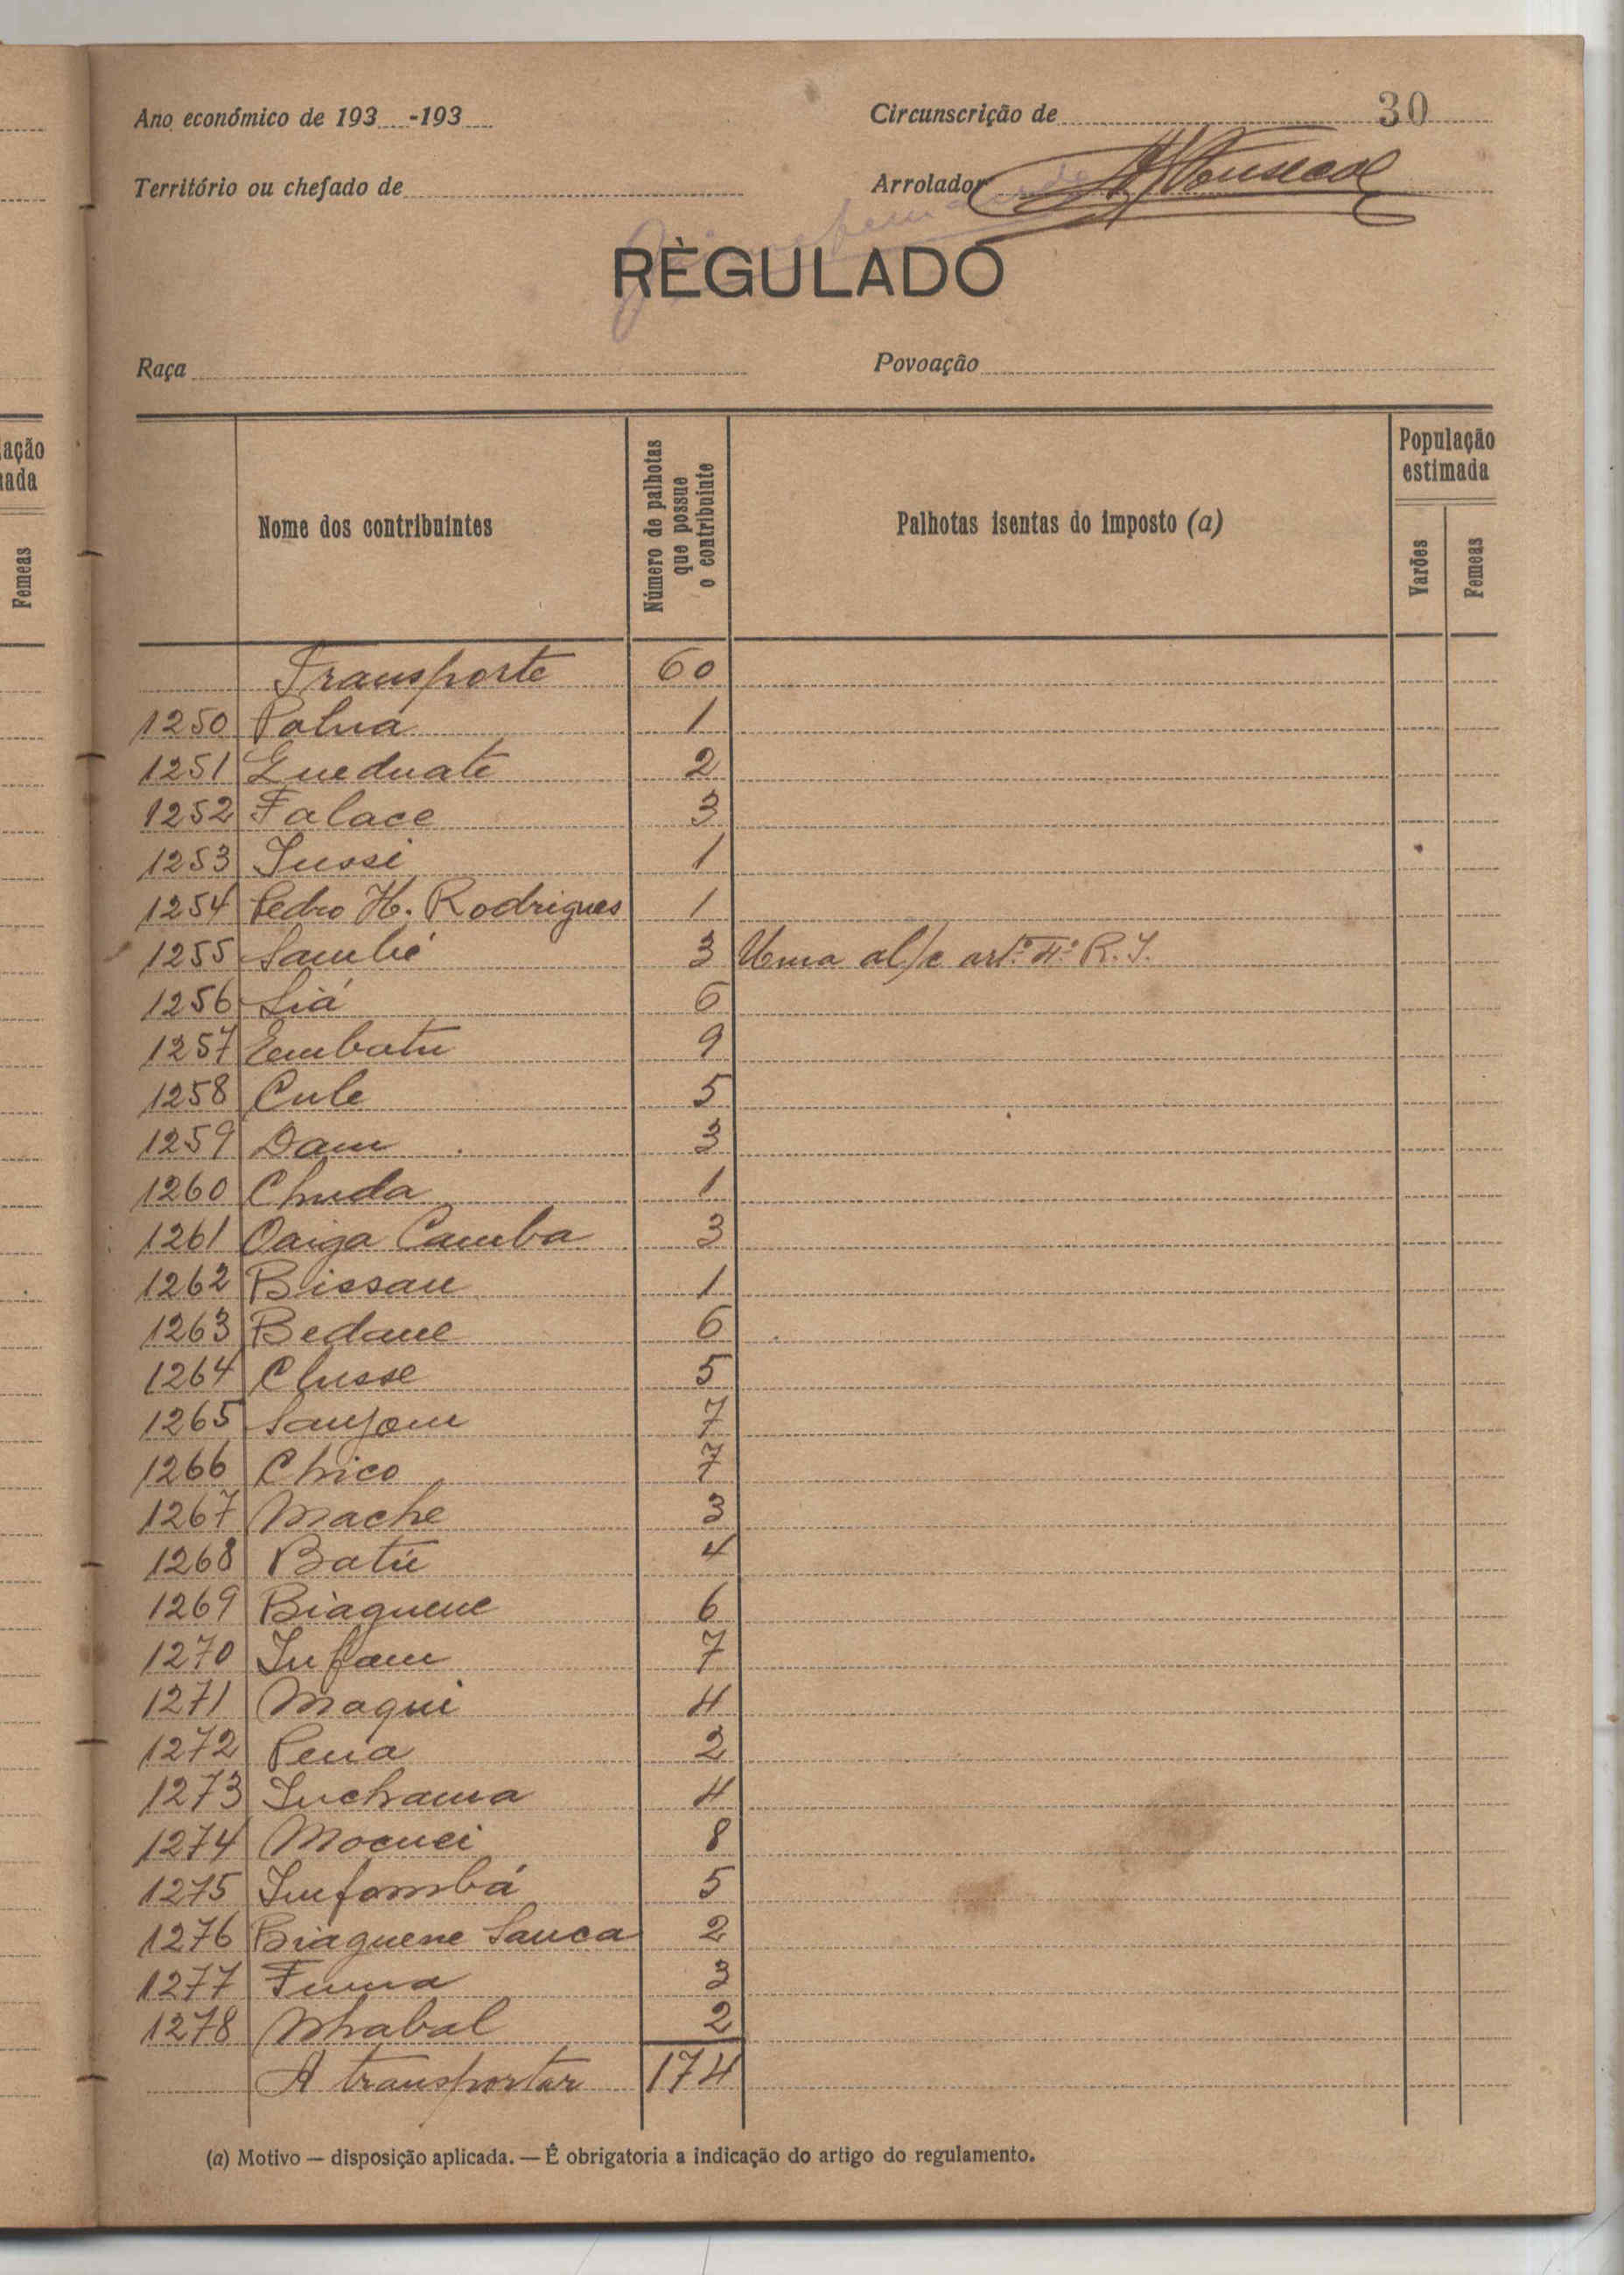 Ano económico de 193 -193
Circunscrição de 30
Território ou chefado de
Arrolador
RÈGULADO
Raça
Povoação
ação
ada
Femeas
Nome dos contribuintes
Número de palhotas que possue o contribuinte
Palhotas isentas do imposto (a)
População estimada
Varões
Femeas
Transporte 60
1250 Polna 1
1251 Gueduate 2
1252 Falace 3
1253 Jussi 1
1254 Pedro H. Rodrigues 1
1255 Sambé 3 Uma al/c artº 4º R. I.
1256 Siá 6
1257 Embatu 9
1258 Cule 5
1259 Dam 3
1260 Chuda 1
1261 Oaiga Camba 3
1262 Bissau 1
1263 Bedane 6
1264 Clusse 5
1265 Sanjom 7
1266 Chico 7
1267 Mache 3
1268 Batú 4
1269 Biaguene 6
1270 Infam 7
1271 Maqui 4
1272 Pena 2
1273 Inchama 4
1274 Mocuei 8
1275 Infombá 5
1276 Biaguene Sanca 2
1277 Fuma 3
1278 Nhabal 2
A transportar 174
(a) Motivo — disposição aplicada. — É obrigatoria a indicação do artigo do regulamento.